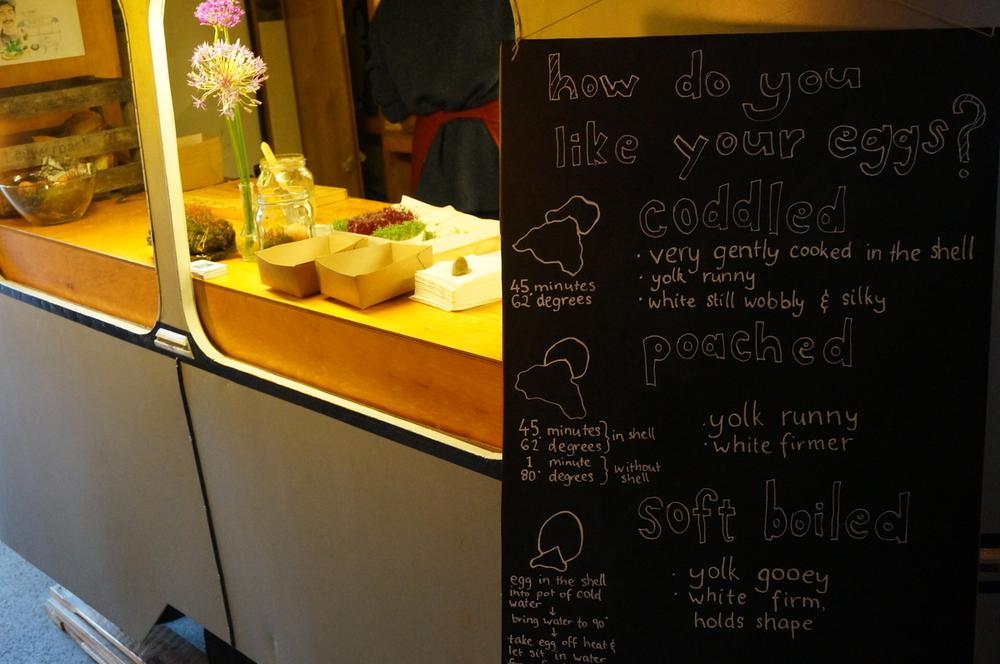 how do you
like your eggs?
coddled
45 minutes
62 degrees
· very gently cooked in the shell
· yolk runny
· white still wobbly & silky
poached
45 minutes
62 degrees
in shell
1 minute
80° degrees
without
shell
· yolk runny
· white firmer
soft boiled
egg in the shell
into pot of cold
water
↓
bring water to 90°
↓
take egg off heat &
let sit in water
· yolk gooey
· white firm,
holds shape